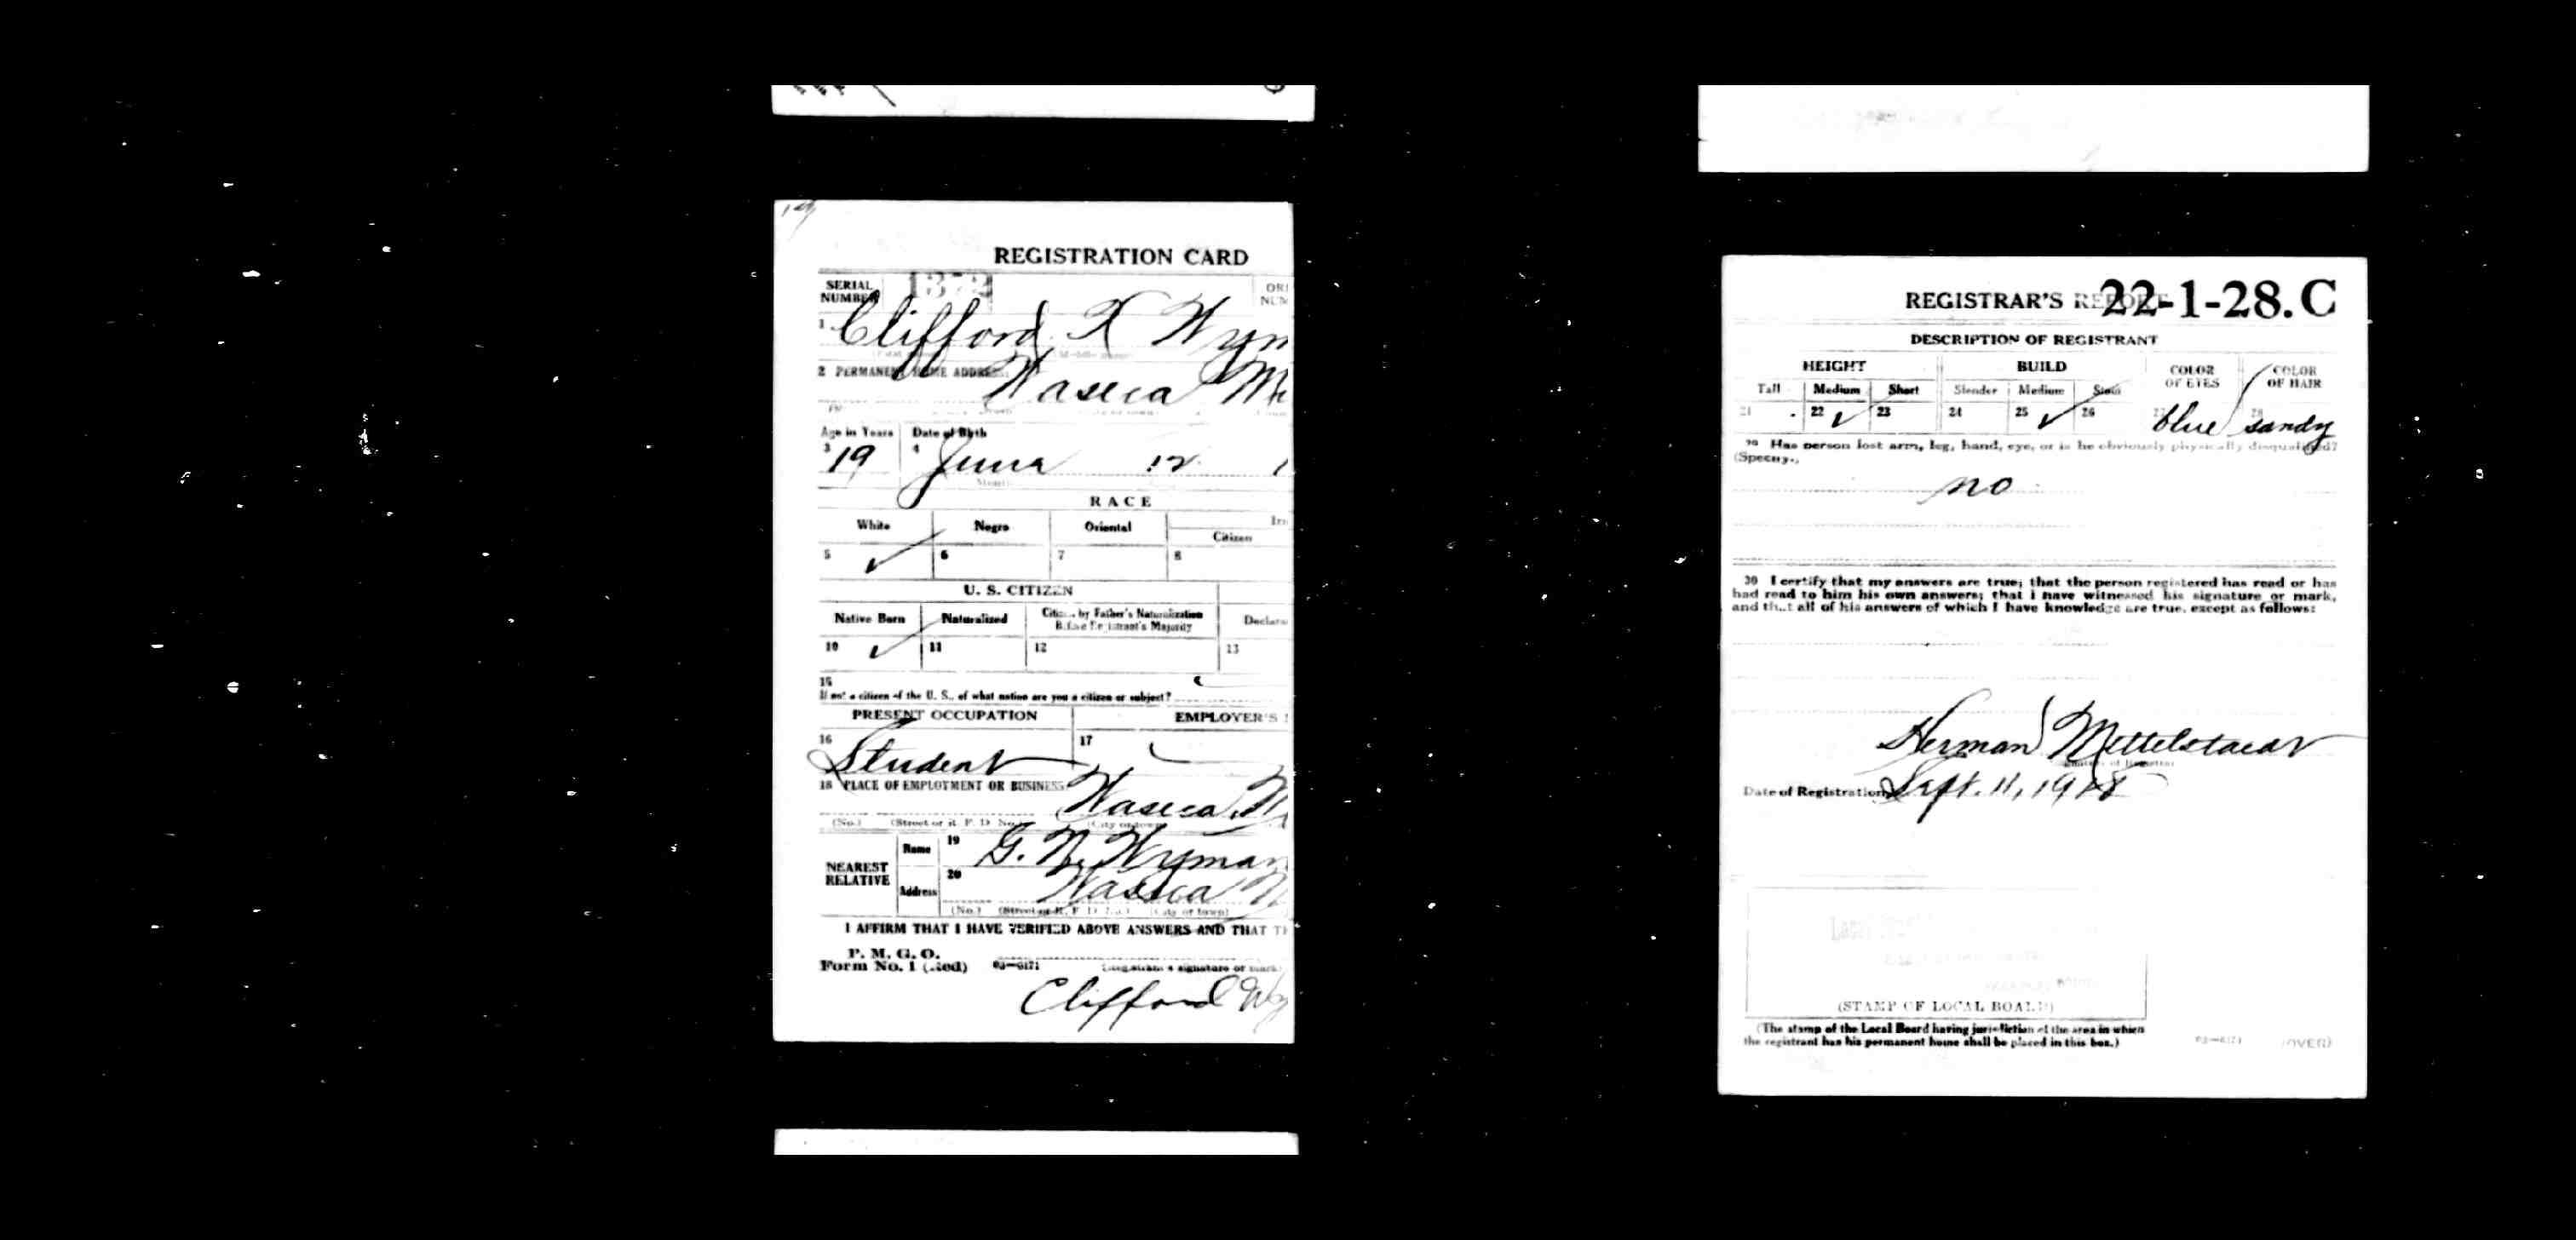 19
REGISTRATION CARD
SERIAL NUMBER 1372
1 Clifford Wym
2 PERMANENT HOME ADDRESS
Waseca
Age in Years Date of Birth
3 19 4 June 12 1
Month
RACE
White Negro Oriental
Citizen
5 ✓ 6 7 8
U. S. CITIZEN
Native Born Naturalized Citizen by Father's Naturalization Before Registrant's Majority Declara
10 ✓ 11 12 13
15
If not a citizen of the U. S., of what nation are you a citizen or subject?
PRESENT OCCUPATION EMPLOYER'S
16 Student 17
18 PLACE OF EMPLOYMENT OR BUSINESS
Waseca
(No.) (Street or R. F. D. No.) (City or town)
NEAREST RELATIVE
Name 19 G. W. Wyman
Address 20 Waseca
(No.) (Street or R. F. D. No.) (City or town)
I AFFIRM THAT I HAVE VERIFIED ABOVE ANSWERS AND THAT TH
P. M. G. O.
Form No. 1 (Red) 03—6171 (Registrant's signature or mark)
Clifford Wy
REGISTRAR'S REPORT 22-1-28. C
DESCRIPTION OF REGISTRANT
HEIGHT BUILD COLOR OF EYES COLOR OF HAIR
Tall Medium Short Slender Medium Stout
21 22 ✓ 23 24 25 ✓ 26 27 blue 28 sandy
29 Has person lost arm, leg, hand, eye, or is he obviously physically disqualified?
(Specify.)
no
30 I certify that my answers are true; that the person registered has read or has
had read to him his own answers; that I have witnessed his signature or mark,
and that all of his answers of which I have knowledge are true, except as follows:
Herman Mittelstaedt
Date of Registration Sept. 11, 1918
(STAMP OF LOCAL BOARD)
(The stamp of the Local Board having jurisdiction of the area in which
the registrant has his permanent home shall be placed in this box.)
03—6171 (OVER)